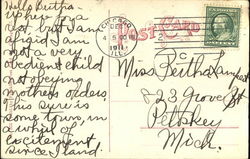 Hello Bertha
Where in a
lot but I am
afraid I am
not a very
obedient child
not obeying
mothers orders
This sure is
some town, in
a whirl of
excitement
since I land.
CHICAGO
4 30 PM
1911
ILL.
POST CARD
Miss Bertha
823 Grove St
Petoskey
Mich.